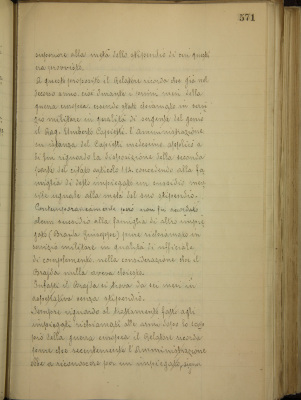 571
inferiore alla metà dello stipendio di cui quoti
na provvista.
A questo proposito il Relatore ricorda che già nel
decorso anno cioè durante i primi mesi della
guerra europea essendo stato chiamato in servi
zio militare in qualità di sergente del genio
il Rag. Umberto l'Amministrazione
su istanza del medesimo applicò a
di lui riguardo la disposizione della seconda
parte del citato articolo concedendo alla fa
miglia di detto impiegato un sussidio men
sile eguale alla metà del suo stipendio.
Contemporaneamente però non fu accordato
alcun sussidio alla famiglia di altro impie
gato (Brajda Giuseppe) pure richiamato in
servizio militare in qualità di ufficiale
di complemento, nella considerazione che il
Brajda nulla aveva chiesto.
Infatti il Brajda si trova da sei mesi in
aspettativa senza stipendio.
Sempre riguardo al trattamento fatto agli
impiegati richiamati alle armi dopo lo scop
pio della guerra europea il Relatore ricorda
come che recentemente l'Amministrazione
ebbe a riconoscere per un impiegato,